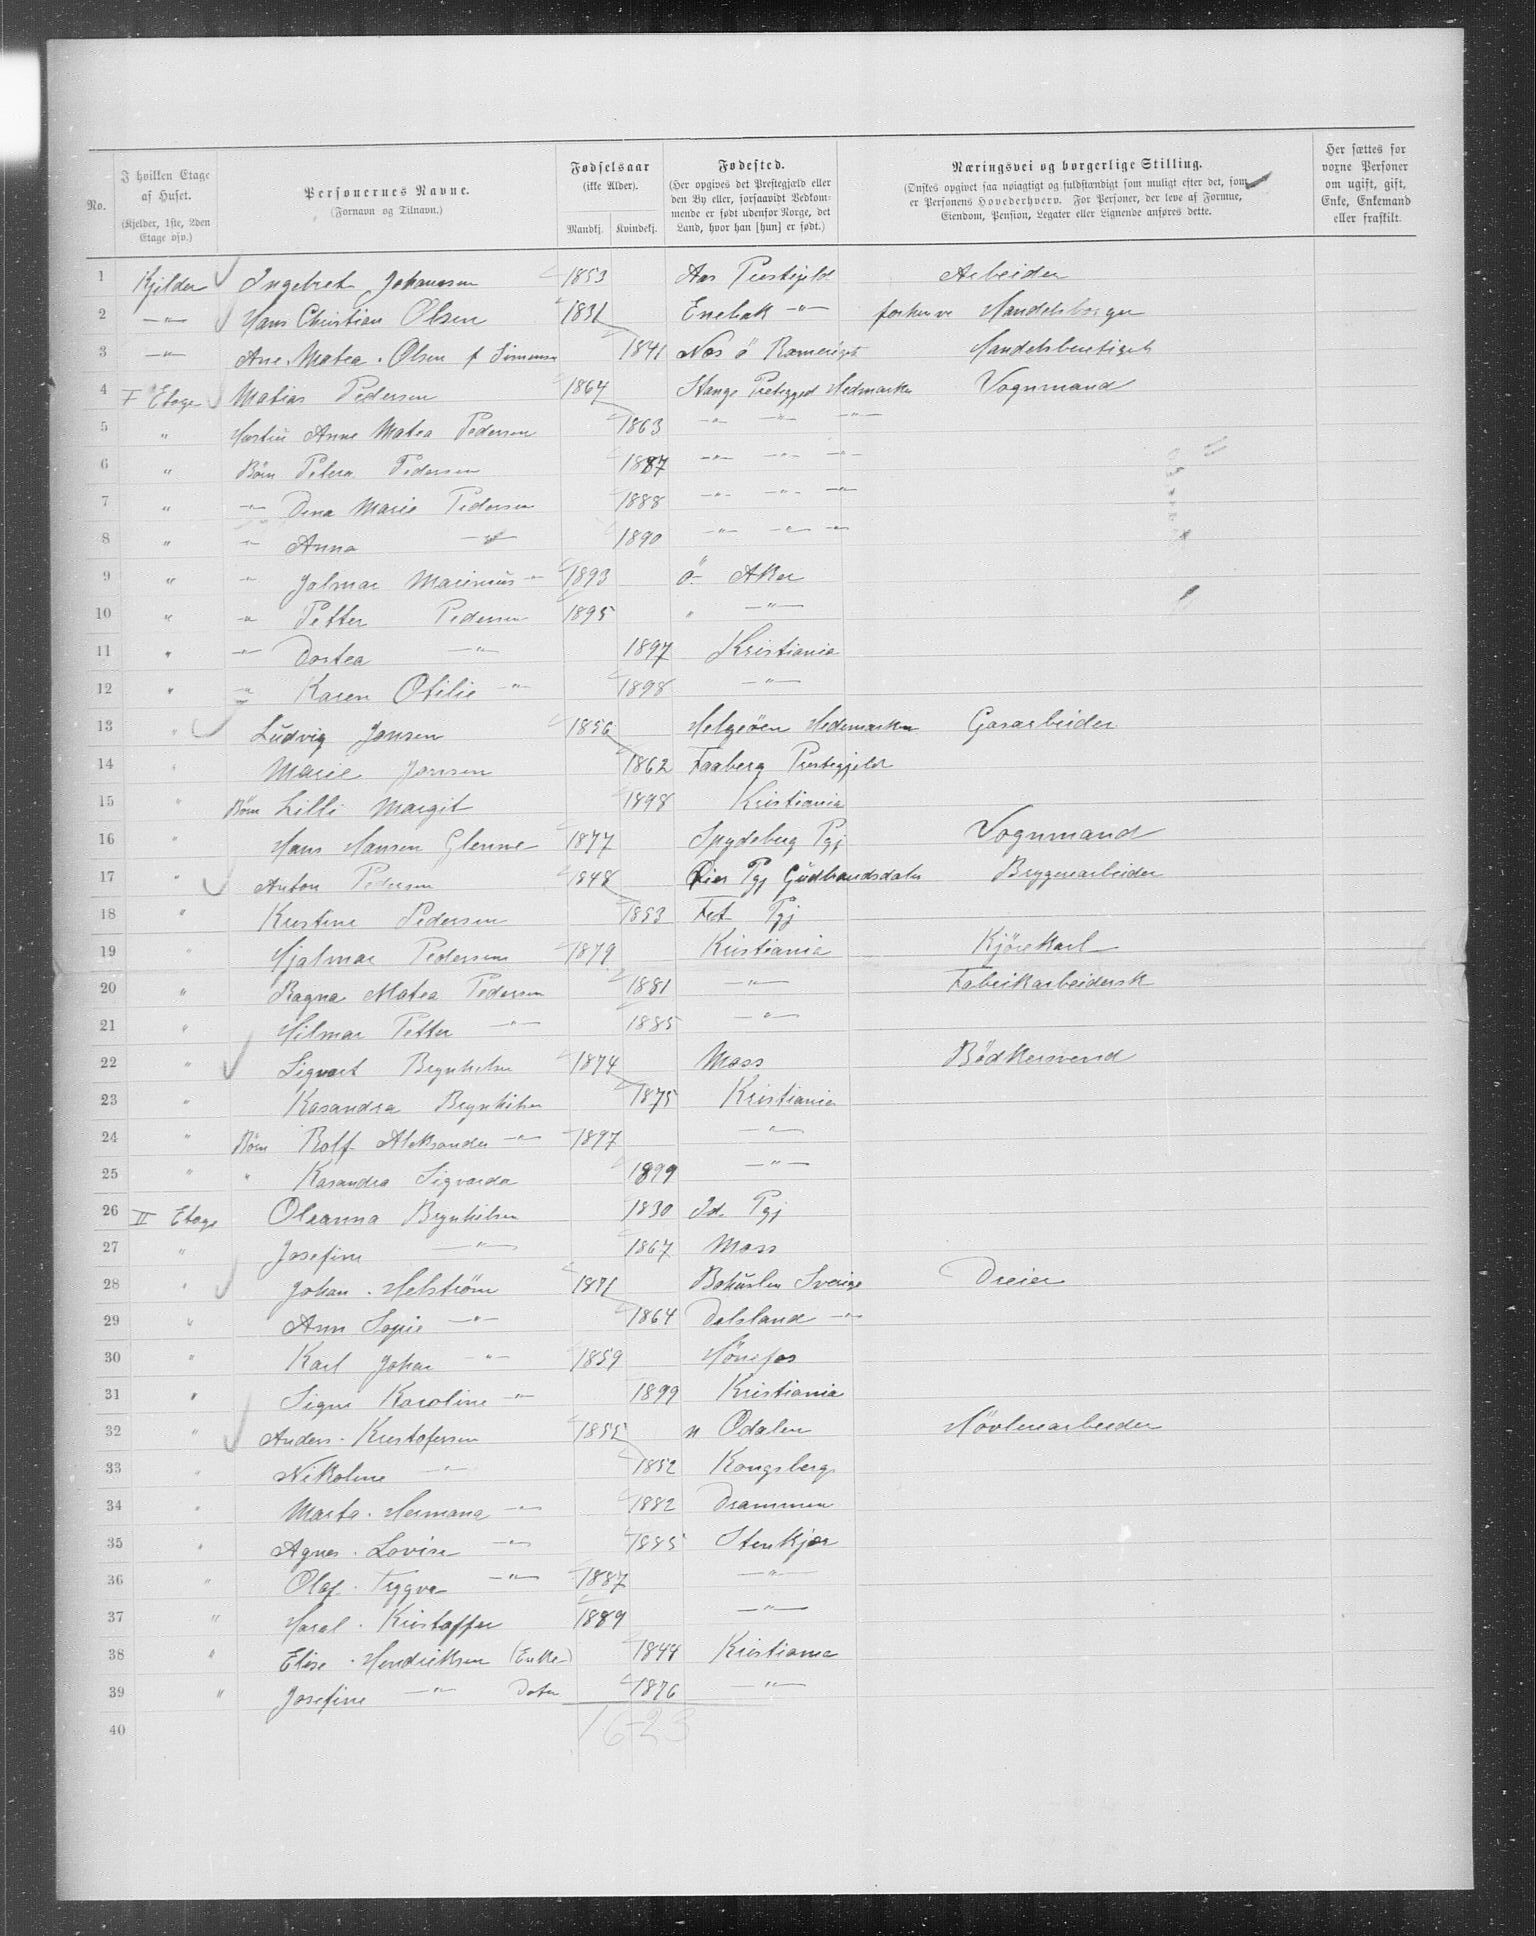 No. I hvilken Etage af Huset. (Kjelder, 1ste, 2den Etage osv.) Personernes Navne. (Fornavn og Tilnavn.) Fødselsaar (ikke Alder). Mandkj. Kvindekj. Fødested. (Her opgives det Prestegjæld eller den By eller, forsaavidt Vedkommende er født udenfor Norge, det Land, hvor han [hun] er født.) Næringsvei og borgerlige Stilling. (Ønskes opgivet saa nøiagtigt og fuldstændigt som muligt efter det, som er Personens Hovederhverv. For Personer, der leve af Formue, Eiendom, Pension, Legater eller Lignende anføres dette. Her sættes for voxne Personer om ugift, gift, Enke, Enkemand eller fraskilt.
1 Kjelder Ingebret Johansen 1853 Aas Prestegjeld Arbeider
2 —"— Hans Christian Olsen 1831 Enebak —"— Handelsborger
3 —"— Ane Matea Olsen f Simensen 1841 Nes ö Romeriget
4 I Etage Matias Pedersen 1864 Stange Hedmarken Vognmand
5 " Hustru Anne Matea Pedersen 1863 —"— —"— —"—
6 " Børn Petra Pedersen 1887 —"— —"— —"—
7 " —"— Dina Marie Pedersen 1888 —"— —"— —"—
8 " —"— Anna —"— 1890 —"— —"— —"—
9 " —"— Jalmar Marinius —"— 1893 ö. Aker
10 " —"— Petter Pedersen 1895 " —"—
11 " —"— Dortea —"— 1897 Kristiania
12 " —"— Karen Otilie —"— 1898 —"—
13 " Ludvig Jonsen 1856 Helgeöen Hedemarken Gasarbeider
14 " Marie Jonsen 1862 Faaberg Prestegjeld
15 " Børn Lilli Margit 1898 Kristiania
16 " Hans Hansen Glenne 1877 Spydeberg Pgj Vognmand
17 " Anton Pedersen 1848 Öier Pgj Gudbrandsdalen Bryggeriarbeider
18 " Kristine Pedersen 1853 Fet Pgj
19 " Hjalmar Pedersen 1879 Kristiania Kjörekarl
20 " Ragna Matea Pedersen 1881 —"— Fabrikarbeidersk
21 " Hilmar Petter —"— 1885 —"—
22 " Sigvart Brynhilsen 1874 Moss Bødkersvend
23 " Kasandra Brynhilsen 1875 Kristiania
24 " Børn Rolf Aleksander —"— 1897 —"—
25 " " Kasandra Sigvarda 1899 —"—
26 II Etage Oleanna Brynhilsen 1830 Id Pgj
27 " Josefine —"— 1867 Moss
28 " Johan Helström 1871 Bohuslen Sverige Dreier
29 " Ann Sopie —"— 1864 Dalsland —"—
30 " Karl Johan —"— 1859 Hönefos
31 " Signe Karoline —"— 1899 Kristiania
32 " Anders Kristofersen 1855 n Odalen Hövleriarbeider
33 " Nikoline —"— 1852 Kongsberg
34 " Marta Hermana —"— 1882 Drammen
35 " Agnes Lovise —"— 1885 Stenkjær
36 " Olaf Trygve —"— 1887 —"—
37 " Haral Kristoffer 1889 —"—
38 " Elise Hendriksen (Enke) 1844 Kristiania
39 " Josefine —"— Dater 1876 —"—
40 16-23